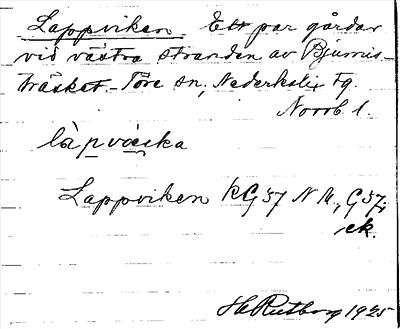 Lappviken Ett par gårdar
vid västra stranden av Bjumis-
träsket. Töre sn, Nederkalix tg.
Norrb. l.
làpvæska
Lappviken KG 37 N M, G 37,
ek.
1925